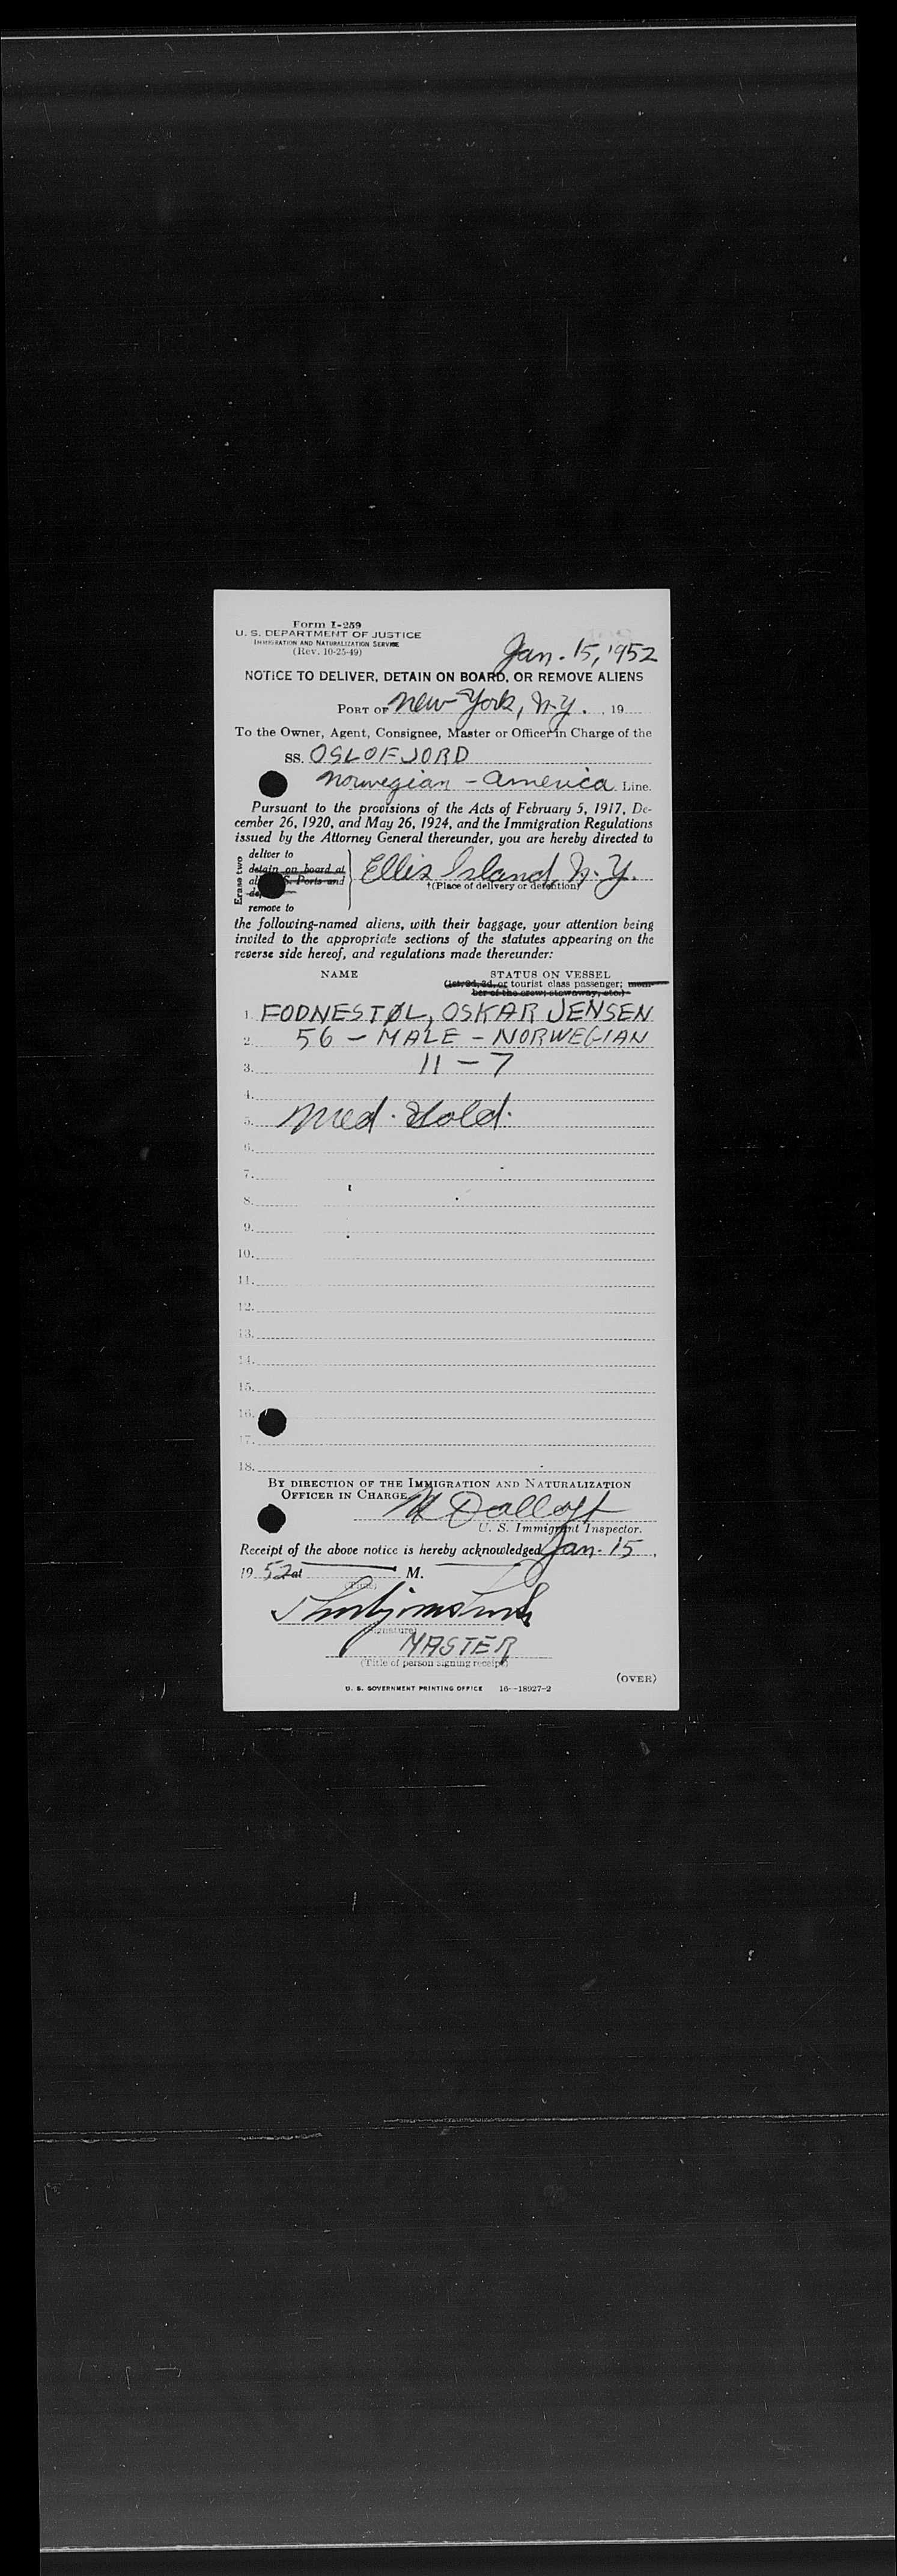 Form I-259
U. S. DEPARTMENT OF JUSTICE
IMMIGRATION AND NATURALIZATION SERVICE
(Rev. 10-25-49)
Jan. 15, 1952
NOTICE TO DELIVER, DETAIN ON BOARD, OR REMOVE ALIENS
PORT OF New York, N.Y. , 19
To the Owner, Agent, Consignee, Master or Officer in Charge of the
SS. OSLOFJORD
Norwegian - America Line.
Pursuant to the provisions of the Acts of February 5, 1917, De-
cember 26, 1920, and May 26, 1924, and the Immigration Regulations
issued by the Attorney General thereunder, you are hereby directed to
Erase two
deliver to
detain on board at
S. Ports and
remove to
Ellis Island, N.Y.
†(Place of delivery or detention)
the following-named aliens, with their baggage, your attention being
invited to the appropriate sections of the statutes appearing on the
reverse side hereof, and regulations made thereunder:
NAME STATUS ON VESSEL
(1st, 2d, 3d, or tourist class passenger; mem-
ber of the crew; stowaway, etc.)
1. FODNESTØL, OSKAR JENSEN
2. 56 - MALE - NORWEGIAN
3. 11 - 7
4.
5. Med. Hold.
6.
7.
8.
9.
10.
11.
12.
13.
14.
15.
16.
17.
18.
BY DIRECTION OF THE IMMIGRATION AND NATURALIZATION
OFFICER IN CHARGE
U. S. Immigrant Inspector.
Receipt of the above notice is hereby acknowledged Jan. 15,
19 52 at M.
(Time)
(Signature)
MASTER
(Title of person signing receipt)
(OVER)
U. S. GOVERNMENT PRINTING OFFICE 16—18927-2